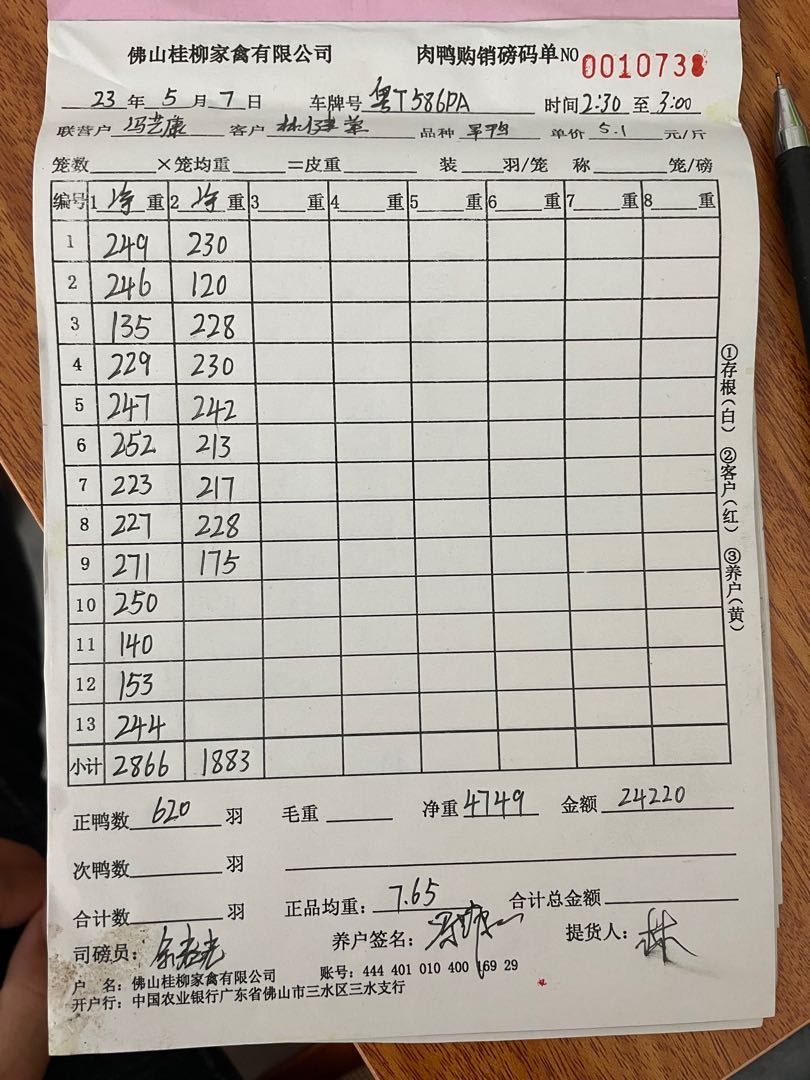 佛山桂柳家禽有限公司 肉鸭购销磅码单 NO 0010738
23 年 5 月 7 日 车牌号 粤T586PA 时间 2:30 至 3:00
联营户 冯艺康 客户 品种 单价 5.1 元/斤
笼数 ×笼均重 =皮重 装 羽/笼 称 笼/磅
编号 1 净 重 2 净 重 3 重 4 重 5 重 6 重 7 重 8 重
1 249 230
2 246 120
3 135 228
4 229 230
5 247 242
6 252 213
7 223 217
8 227 228
9 271 175
10 250
11 140
12 153
13 244
小计 2866 1883
正鸭数 620 羽 毛重 净重 4749 金额 24220
次鸭数 羽
合计数 羽 正品均重: 7.65 合计总金额
司磅员: 养户签名: 提货人: 林
户 名: 佛山桂柳家禽有限公司 账号: 444 401 010 400 169 29
开户行: 中国农业银行广东省佛山市三水区三水支行
①存根(白) ②客户(红) ③养户(黄)